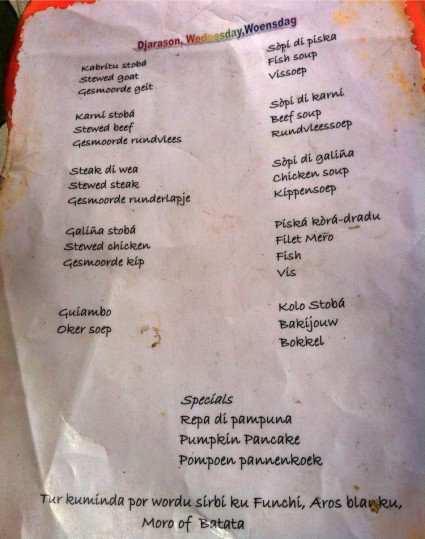 Djarason, Wednesday,Woensdag
Kabritu stobá
Stewed goat
Gesmoorde geit
Karni stobá
Stewed beef
Gesmoorde rundvlees
Steak di wea
Stewed steak
Gesmoorde runderlapje
Galiña stobá
Stewed chicken
Gesmoorde kip
Guiambo
Oker soep
Sòpi di piska
Fish soup
Vissoep
Sòpi di karni
Beef soup
Rundvleessoep
Sòpi di galiña
Chicken soup
Kippensoep
Piská kòrá-dradu
Filet Mero
Fish
Vis
Kolo Stobá
Bakijouw
Bokkel
Specials
Repa di pampuna
Pumpkin Pancake
Pompoen pannenkoek
Tur kuminda por wordu sirbi ku Funchi, Aros blanku,
Moro of Batata